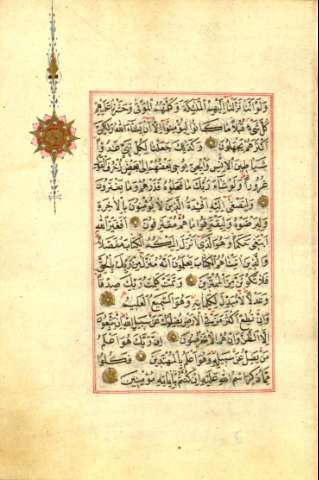 وَلَوْ أَنَّنَا نَزَّلْنَا إِلَيْهِمُ الْمَلٰئِكَةَ وَكَلَّمَهُمُ الْمَوْتٰى وَحَشَرْنَا عَلَيْهِمْ
كُلَّ شَيْءٍ قُبُلًا مَا كَانُوا لِيُؤْمِنُوا إِلَّا أَنْ يَشَاءَ اللّٰهُ وَلٰكِنَّ
أَكْثَرَهُمْ يَجْهَلُونَ وَكَذٰلِكَ جَعَلْنَا لِكُلِّ نَبِيٍّ عَدُوًّا
شَيَاطِينَ الْإِنْسِ وَالْجِنِّ يُوحِي بَعْضُهُمْ إِلٰى بَعْضٍ زُخْرُفَ الْقَوْلِ
غُرُورًا وَلَوْ شَاءَ رَبُّكَ مَا فَعَلُوهُ فَذَرْهُمْ وَمَا يَفْتَرُونَ
وَلِتَصْغٰى إِلَيْهِ أَفْئِدَةُ الَّذِينَ لَا يُؤْمِنُونَ بِالْآخِرَةِ
وَلِيَرْضَوْهُ وَلِيَقْتَرِفُوا مَا هُمْ مُقْتَرِفُونَ أَفَغَيْرَ اللّٰهِ
أَبْتَغِي حَكَمًا وَهُوَ الَّذِي أَنْزَلَ إِلَيْكُمُ الْكِتَابَ مُفَصَّلًا
وَالَّذِينَ آتَيْنَاهُمُ الْكِتَابَ يَعْلَمُونَ أَنَّهُ مُنَزَّلٌ مِنْ رَبِّكَ بِالْحَقِّ
فَلَا تَكُونَنَّ مِنَ الْمُمْتَرِينَ وَتَمَّتْ كَلِمَتُ رَبِّكَ صِدْقًا
وَعَدْلًا لَا مُبَدِّلَ لِكَلِمَاتِهِ وَهُوَ السَّمِيعُ الْعَلِيمُ
وَإِنْ تُطِعْ أَكْثَرَ مَنْ فِي الْأَرْضِ يُضِلُّوكَ عَنْ سَبِيلِ اللّٰهِ إِنْ يَتَّبِعُونَ
إِلَّا الظَّنَّ وَإِنْ هُمْ إِلَّا يَخْرُصُونَ إِنَّ رَبَّكَ هُوَ أَعْلَمُ
مَنْ يَضِلُّ عَنْ سَبِيلِهِ وَهُوَ أَعْلَمُ بِالْمُهْتَدِينَ فَكُلُوا
مِمَّا ذُكِرَ اسْمُ اللّٰهِ عَلَيْهِ إِنْ كُنْتُمْ بِآيَاتِهِ مُؤْمِنِينَ